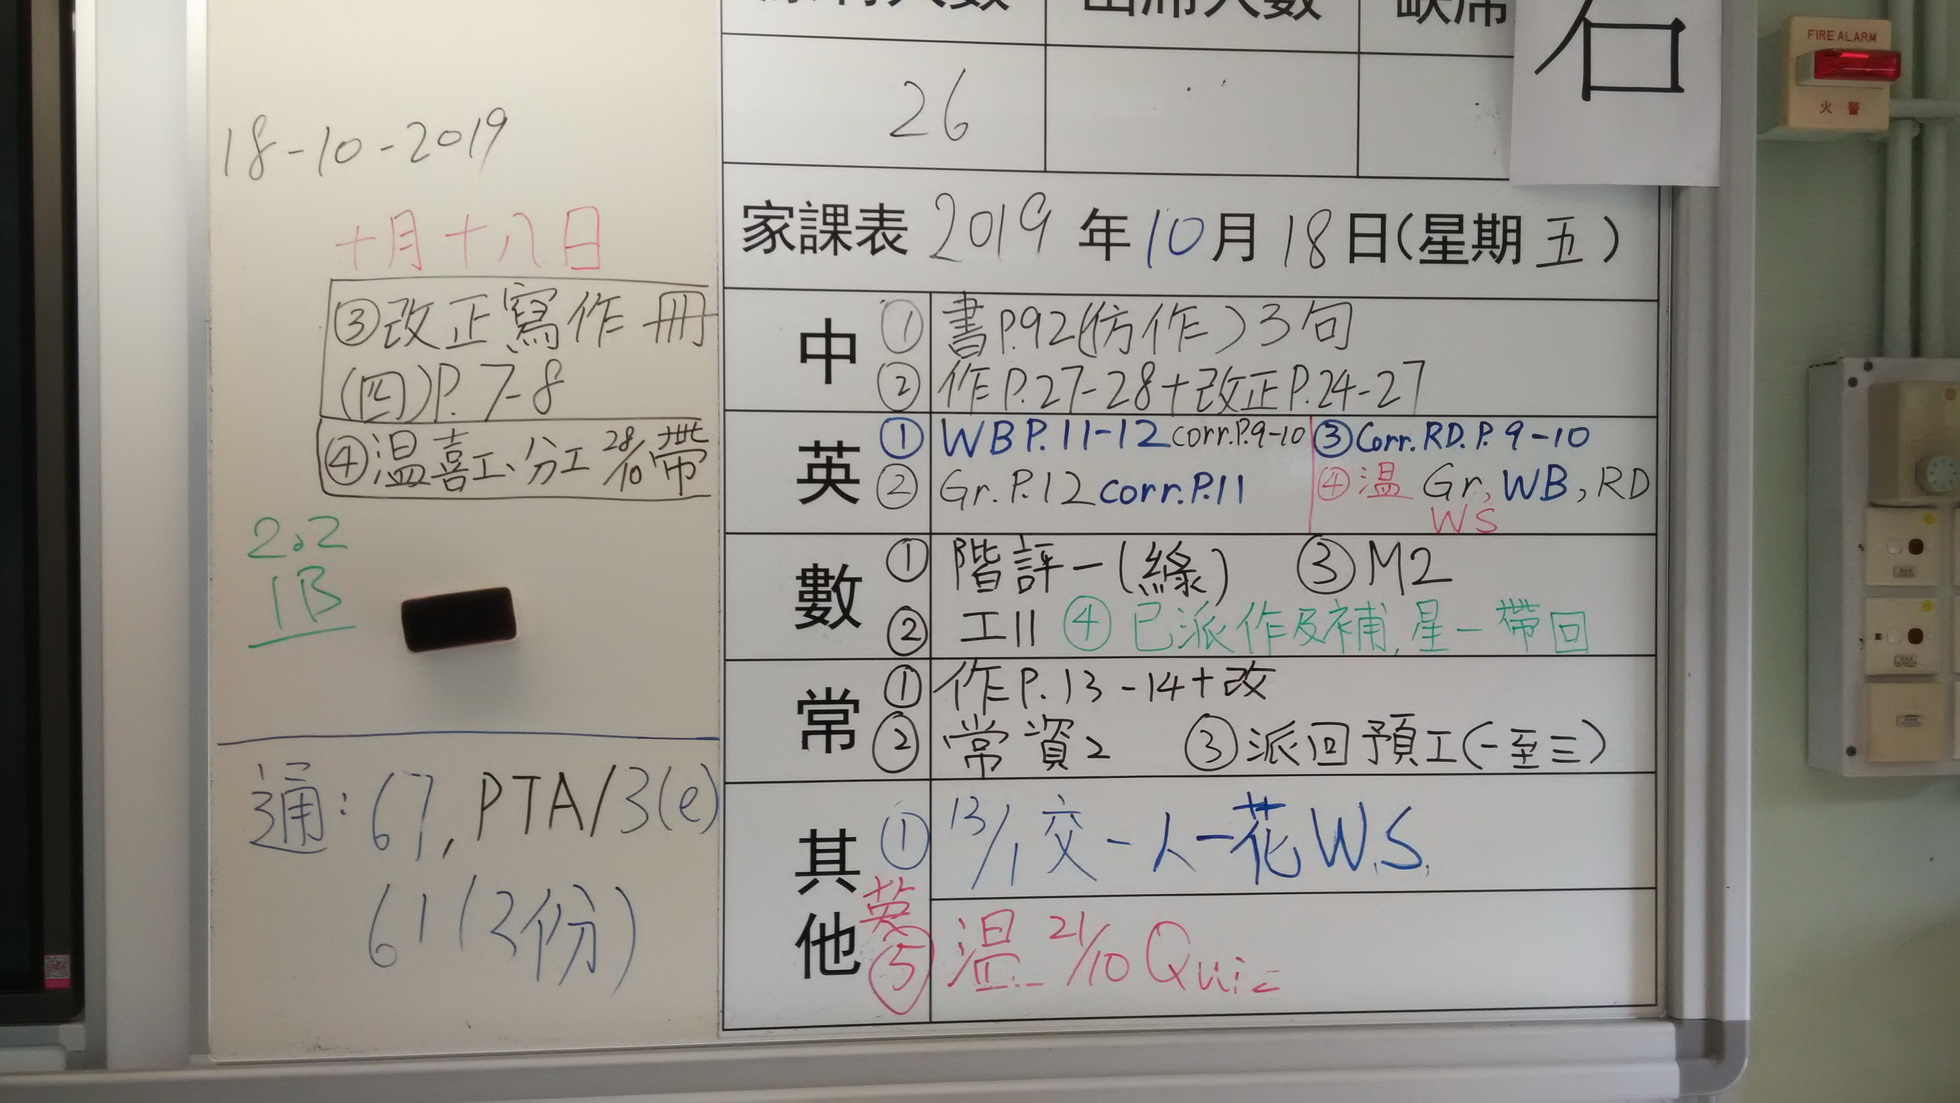 26
石
FIRE ALARM
火 警
18-10-2019
十月十八日
③改正寫作冊
(四)P.7-8
④溫喜工、分工 28/10帶
2.2
1B
通: 67, PTA/3(e)
61(2份)
家課表 2019 年 10 月 18 日(星期 五)
中 ① 書P.92(仿作)3句
② 作P.27-28+改正P.24-27
英 ① WB P.11-12 corr.P.9-10 ③Corr.RD.P.9-10
② Gr.P.12 corr.P.11 ④溫 Gr, WB, RD
WS
數 ① 階評一(線) ③M2
② 工11 ④已派作及補,星一帶回
常 ① 作P.13-14+改
② 常資2 ③派回預工(一至三)
其他 ① 13/1交一人一花W.S.
英⑤ 溫 21/10 Quiz